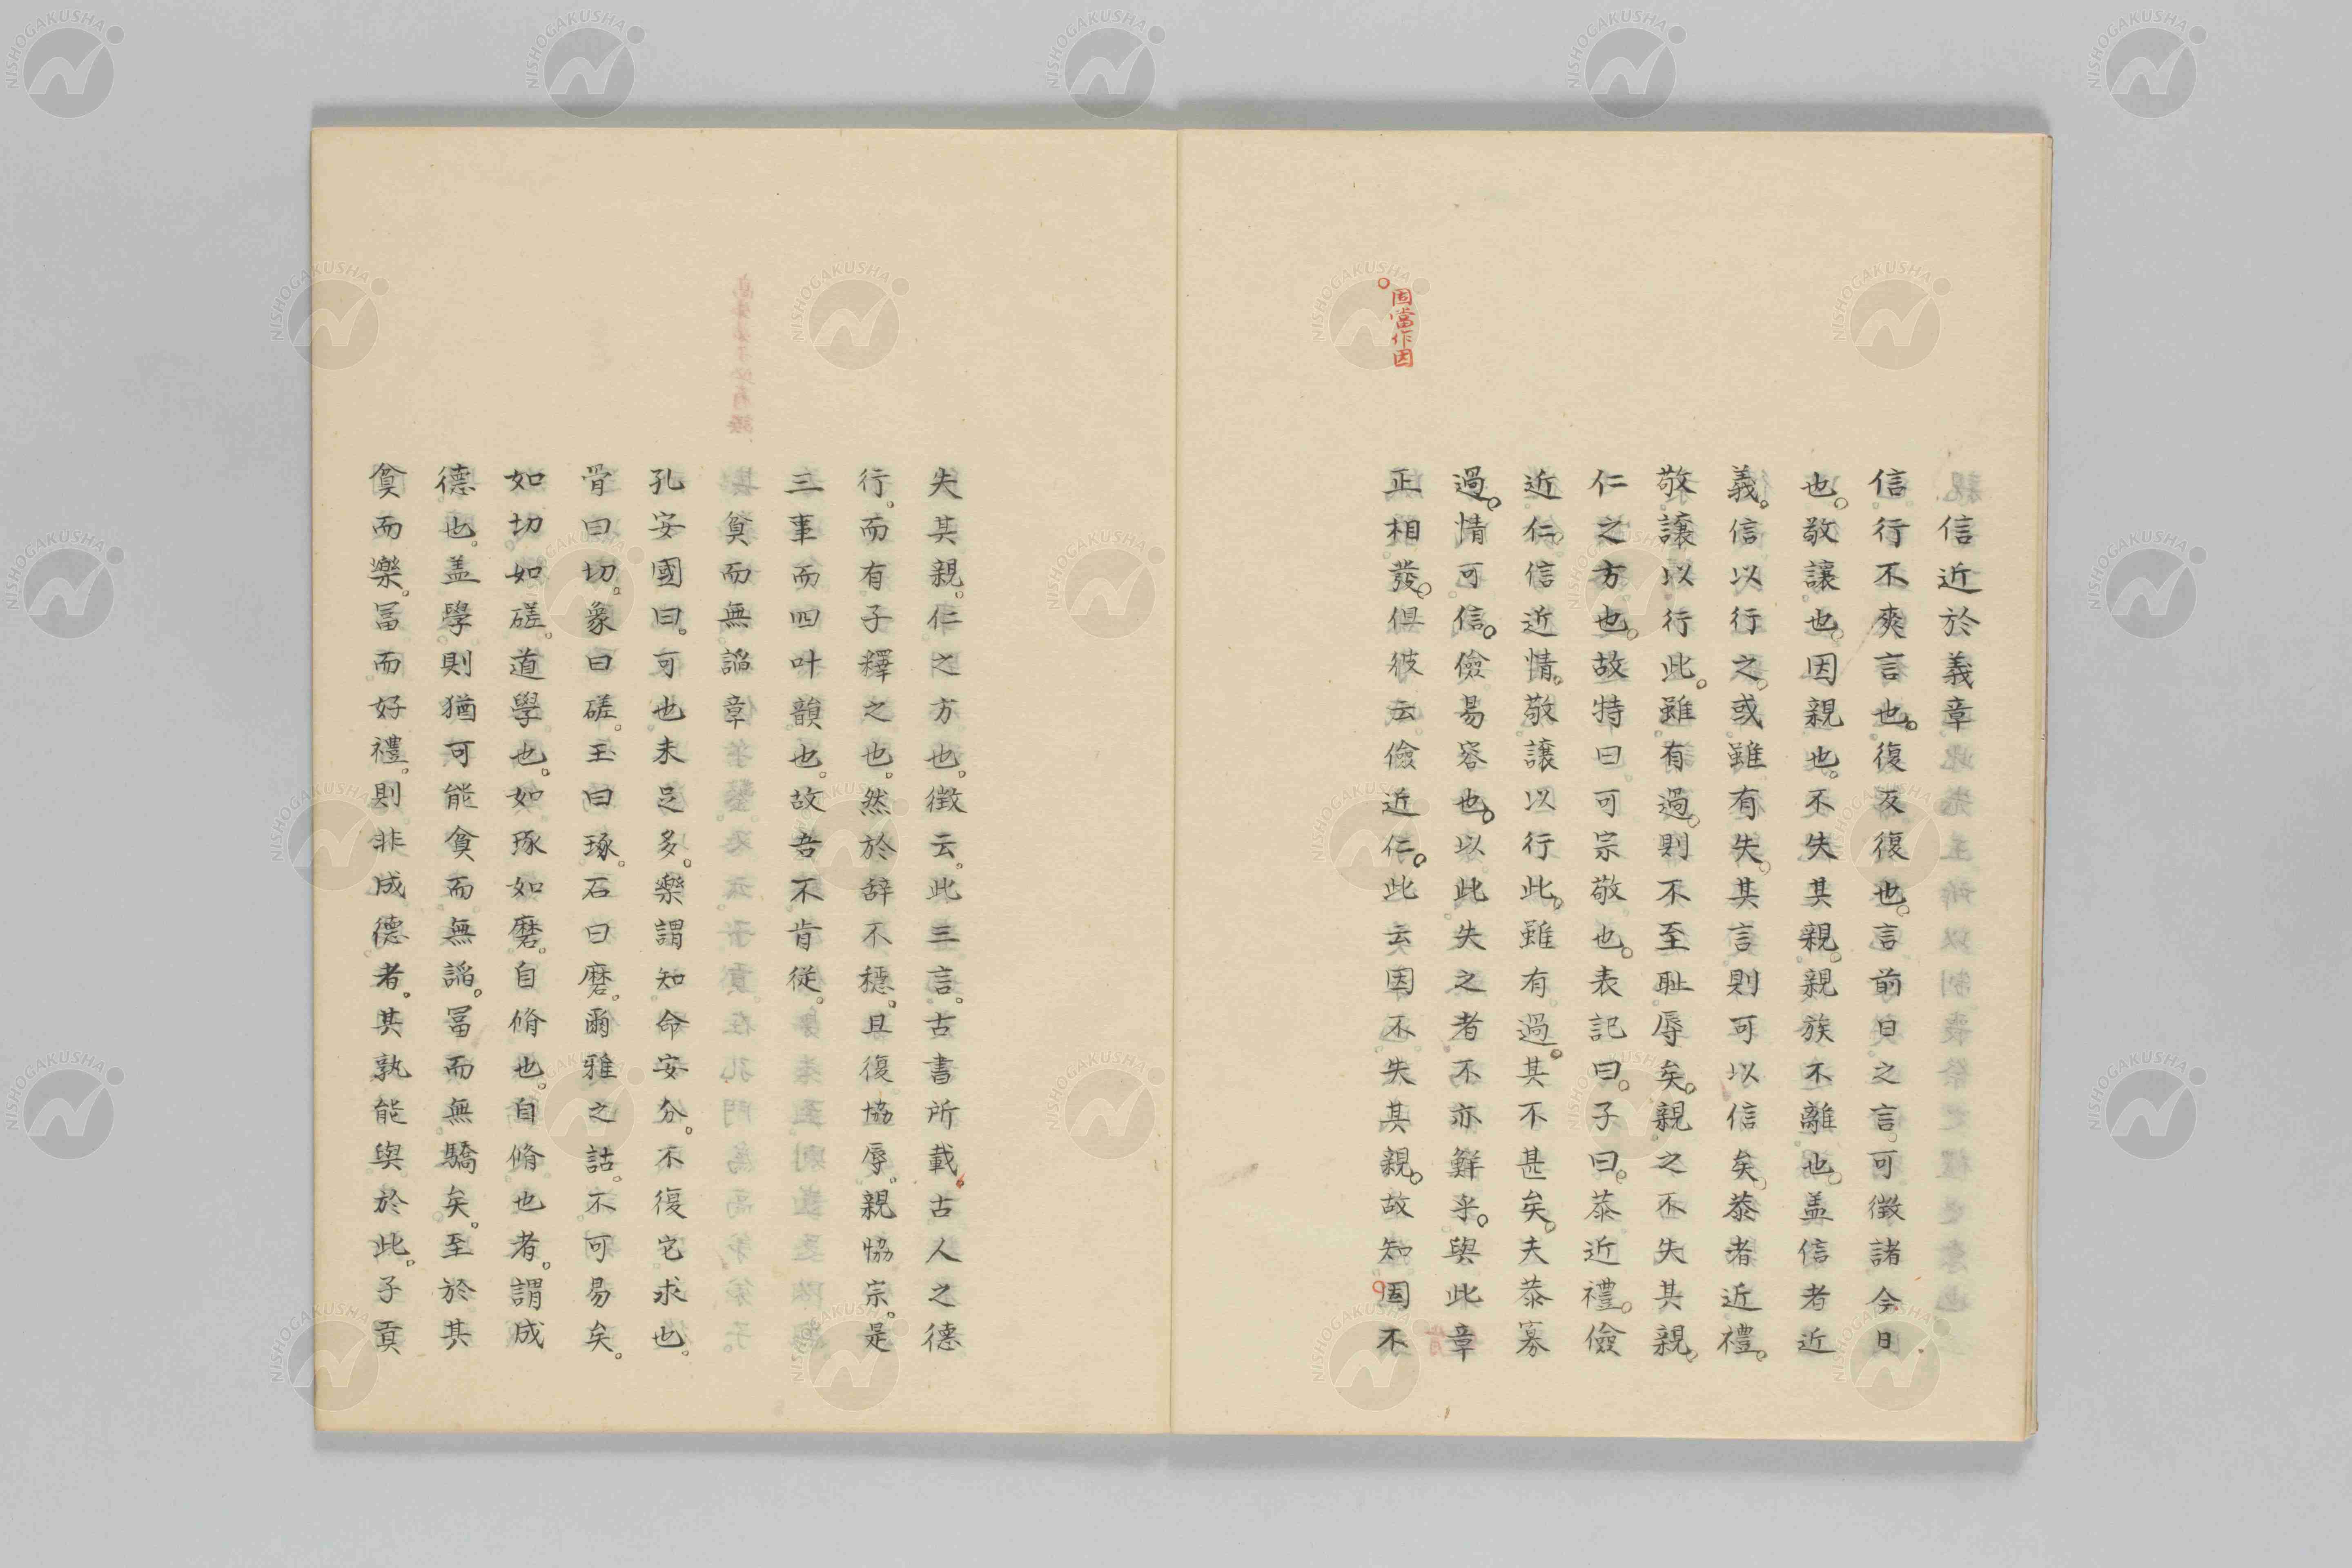 固當作因
信近於義章
信行不爽言也。復反復也。言前日之言可徵諸今日
也。敬讓也。因親也。不失其親。親族不離也。盖信者近
義。信以行之。或雖有失。其言則可以信矣。恭者近禮。
敬讓以行此。雖有過。則不至耻辱矣。親之不失其親。
仁之方也。故特曰可宗敬也。表記曰。子曰。恭近禮。儉
近仁。信近情。敬讓以行此。雖有過。其不甚矣。夫恭寡
過。情可信。儉易容也。以此失之者不亦鮮乎。與此章
正相發。俱彼云儉近仁。此云因不失其親。故知固不
失其親。仁之方也。徵云。此三言。古書所載。古人之德
行。而有子釋之也。然於辞不穩。且復協辱。親恊宗。是
三事而四叶韻也。故吾不肯從。
貧而無謟章
孔安國曰。可也未足多。樂謂知命安分。不復它求也。
骨曰切。象曰磋。玉曰琢。石曰磨。爾雅之詁。不可易矣。
如切如磋。道學也。如琢如磨。自脩也。自脩也者。謂成
德也。盖學則猶可能貧而無謟。冨而無驕矣。至於其
貧而樂。冨而好禮。則非成德者。其孰能與於此。子貢
NISHOGAKUSHA